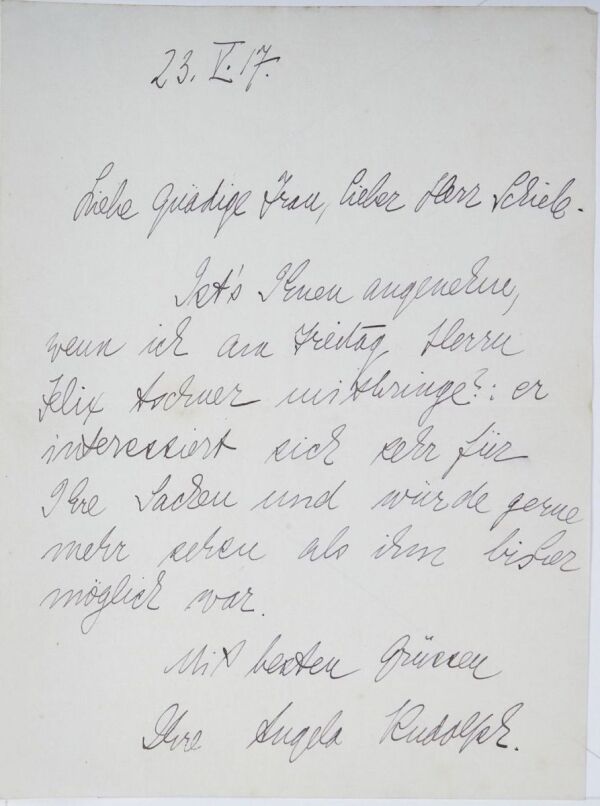 23. V. 17.
Liebe gnädige Frau, lieber Herr Schiele.
Ist's Ihnen angenehm,
wenn ich am Freitag Herrn
Felix mitbringe?: er
interessiert sich sehr für
Ihre Sachen und würde gerne
mehr sehen als ihm bisher
möglich war.
Mit besten Grüssen
Ihre Angela Rudolph.